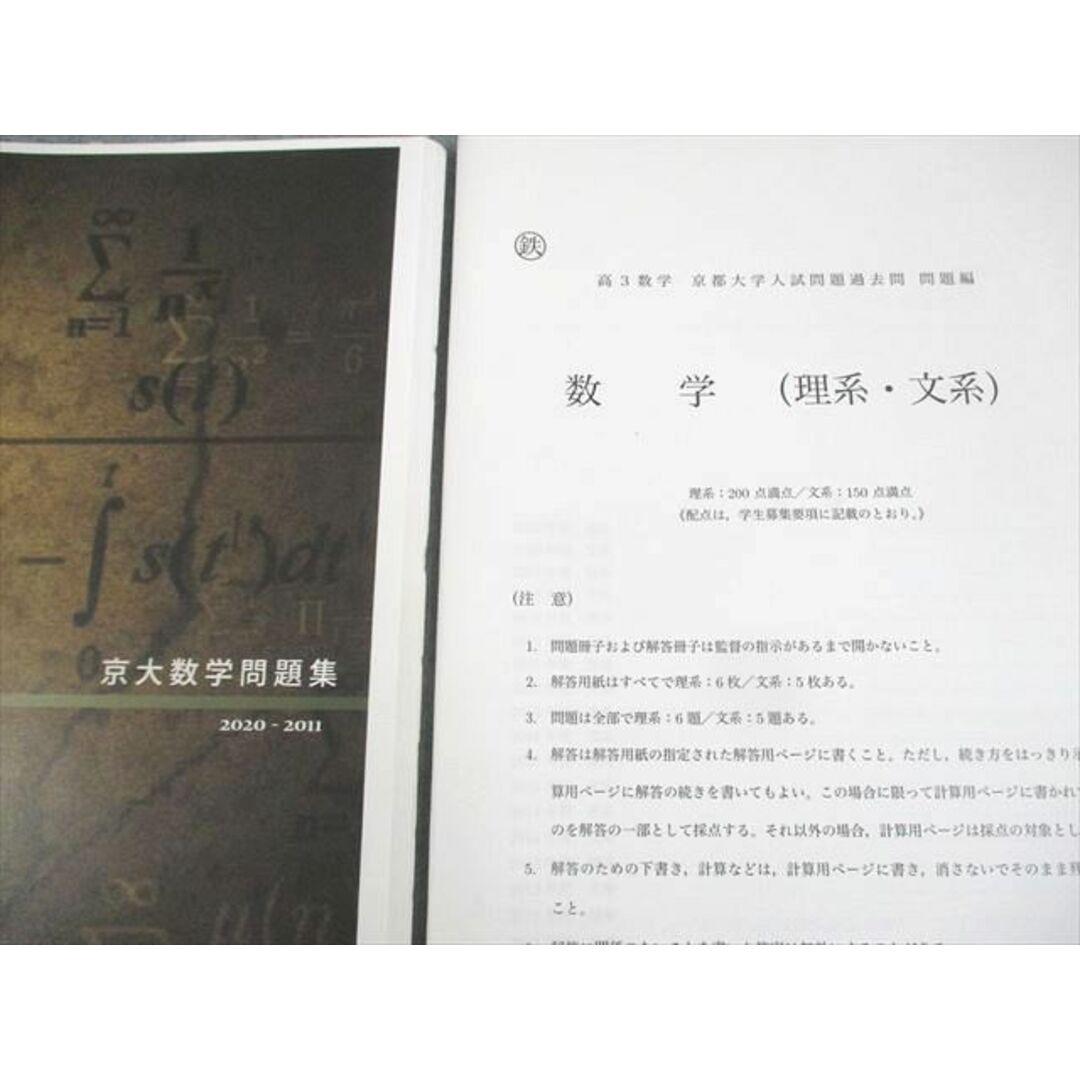 ∞
∑ 1/n^x
n=1
∑ 1/n² = π²/6
s(t)
-∫ s(t')dt'
0
∑ Π
京大数学問題集
2020 - 2011
∞
鉄
高3数学 京都大学入試問題過去問 問題編
数 学 (理系・文系)
理系:200 点満点/文系:150 点満点
《配点は,学生募集要項に記載のとおり。》
(注 意)
1. 問題冊子および解答冊子は監督の指示があるまで開かないこと。
2. 解答用紙はすべてで理系:6枚/文系:5枚ある。
3. 問題は全部で理系:6題/文系:5題ある。
4. 解答は解答用紙の指定された解答用ページに書くこと。ただし,続き方をはっきり
算用ページに解答の続きを書いてもよい。この場合に限って計算用ページに書かれ
のを解答の一部として採点する。それ以外の場合,計算用ページは採点の対象とし
5. 解答のための下書き,計算などは,計算用ページに書き,消さないでそのまま
こと。